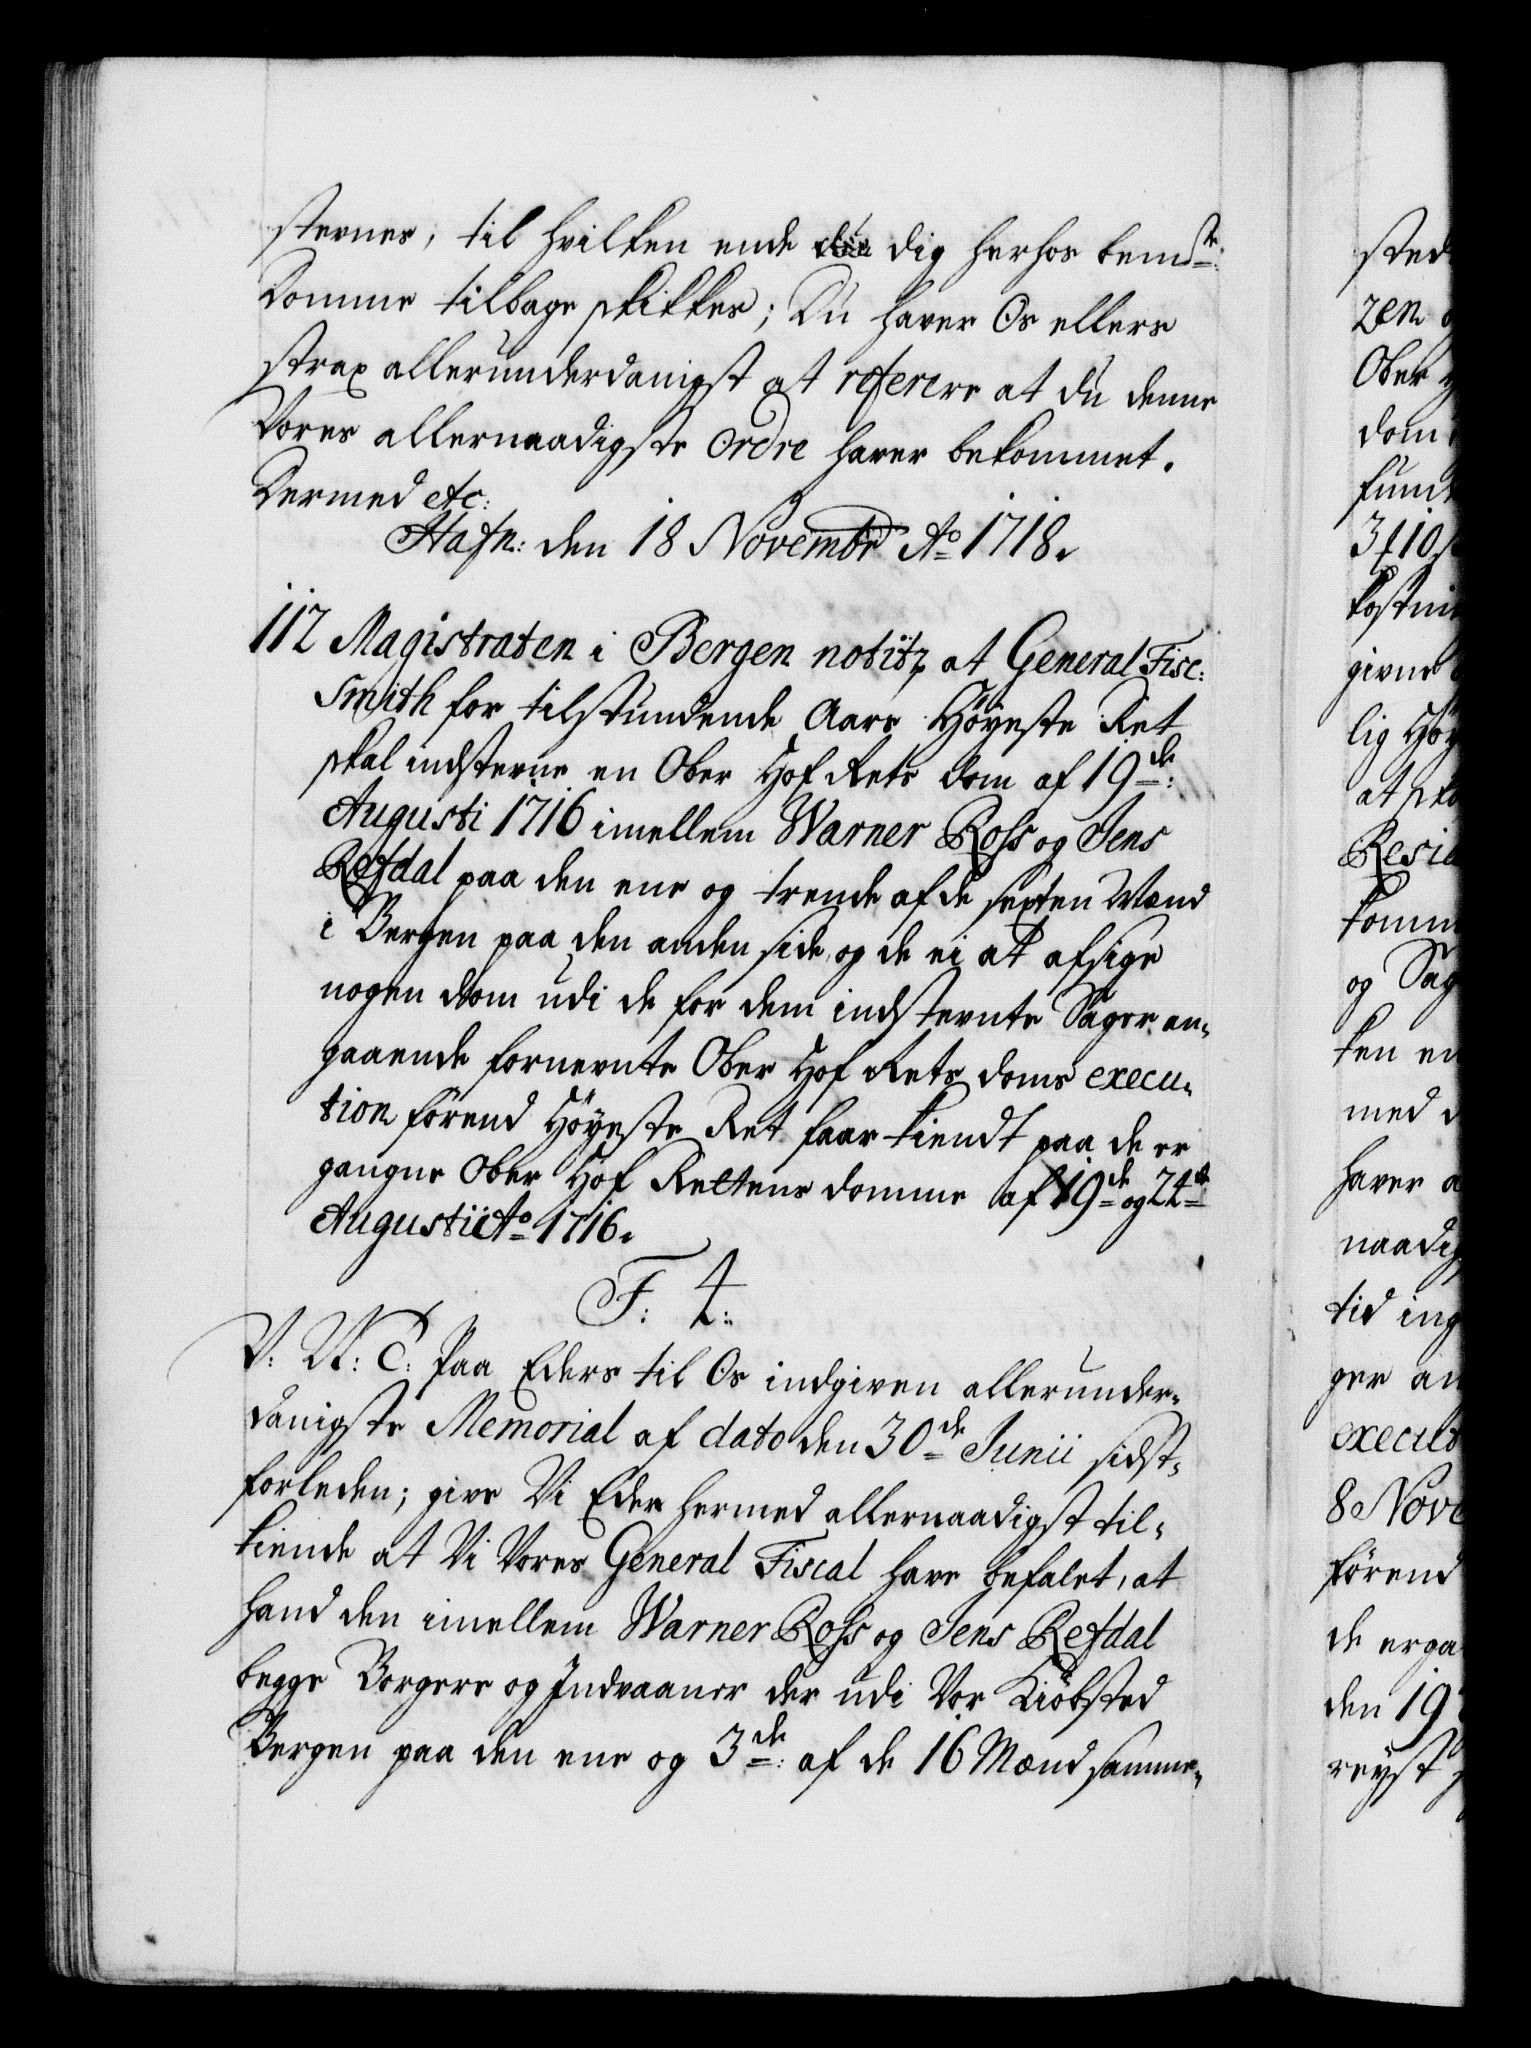 sternes, til hvilken ende dig herhos bemte:
Domme tilbage skikkes; Du haver Os ellers
strax allerunderdanigst at referere at du denne
Vores allernaadigste Ordre haver bekommet.
Dermed etc:
Hafn: den 18 Novembr Ao 1718.
112 Magistraten i Bergen notitz at General Fisc:
Smith for tilstundende Aars Höyeste Ret
skal indsterne en Ober Hof Rets dom af 19de:
Augusti 1716 imellem Warner Rohs og Jens
Refdal paa den ene og trende af de sexten Mænd
i Bergen paa den anden side, og de ei at afsige
nogen dom udi de for dem indstevnte Sager an-
gaaende fornevnte Ober Hof Rets doms execu-
tion förend Höyeste Ret faar kiendt paa de er
gangne Ober Hof Rettens domme af 19de og 24de
Augusti Ao 1716.
F: 4:
V: U: G: Paa Eders til Os indgiven allerunder-
danigste Memorial af dato den 30de Junii sidst-
forleden; give Vi Eder hermed allernaadigst til-
kiende at Vi Vores General Fiscal have befalet, at
hand den imellem Warner Rohs og Jens Refdal
begge Borgere og Indvaaner der udi Vor Kiöbsted
Bergen paa den ene og 3de: af de 16 Mænd samme-
sted
zen
Ober
dom
fund
3 f 10
kostni
givne
lig Höy
at ska
Resid
komm
og Sag
ken en
med
haver a
naadig
tid ing
ger an
execut
8 Nove
förend
de erga
den 19
reyst